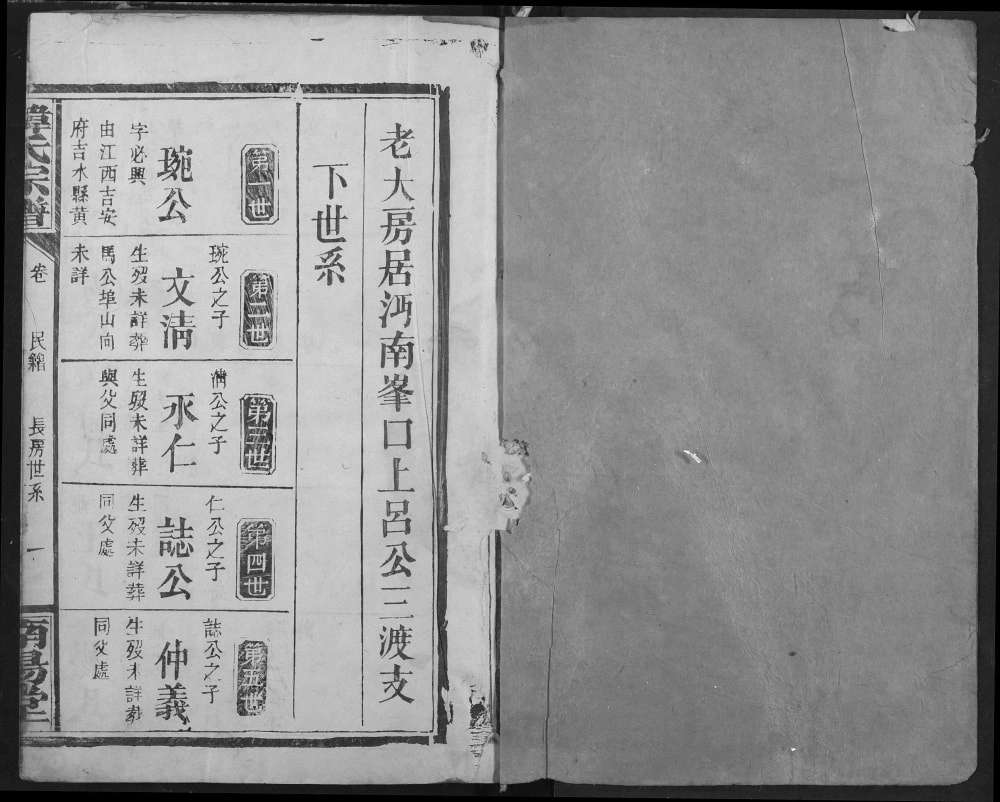 老大房居沔南峯口上呂公三渡支
下世系
第一世
琬公
字必興
由江西吉安
府吉水縣黃
第二世
琬公之子
文淸
生歿未詳葬
馬公埠山向
未詳
第三世
淸公之子
永仁
生歿未詳葬
與父同處
第四世
仁公之子
誌公
生歿未詳葬
同父處
第五世
誌公之子
仲義
生歿未詳葬
同父處
氏宗譜
卷
民籍
長房世系
一
南陽堂